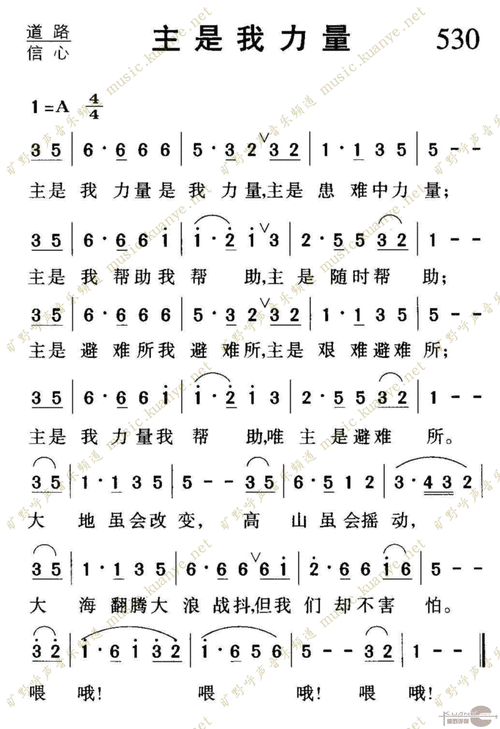 道路
信心
主是我力量 530
1=A 4/4
3 5 | 6 · 6 6 6 | 5 · 3 2 ∨ 3 2 | 1 · 1 3 5 | 5 - - |
主是 我 力量是 我 力 量,主是 患 难中力 量;
3 5 | 6 · 6 6 i | i · 2 i ∨ 3 | 2 · 5 5 3 2 | 1 - - |
主是 我 帮助我 帮 助,主 是 随时帮 助;
3 5 | 6 · 6 6 6 | 5 · 3 2 ∨ 3 2 | 1 · 1 3 5 | 5 - - |
主是 避 难所我 避 难所,主是 艰 难避难 所;
3 5 | 6 · 6 6 i | i · 2 i 3 | 2 · 5 5 3 2 | 1 - - |
主是 我 力量我 帮 助,唯 主 是避难 所。
3 5 | 1 · 1 3 5 | 5 - - 3 2 | 6 · 5 1 2 | 3 · 4 3 2 |
大 地 虽会改 变, 高 山 虽会摇 动,
3 5 | 1 · 1 3 5 | 6 · 6 6 ∨ 6 i | 2 · 6 6 i 6 | 5 - - |
大 海 翻腾大 浪 战抖,但我 们 却不害 怕。
3 2 | i · 6 i 3 2 | i - - 3 2 | i · 6 5 6 | 5 - - 3 2 |
喂 哦! 喂 哦! 喂 哦!
旷野呼声音乐频道 music.kuanye.net